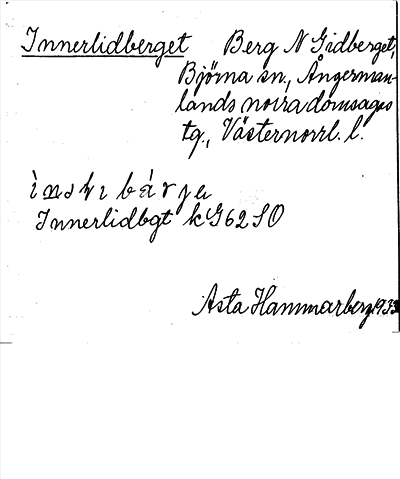 Innerlidberget Berg N Gidberget,
Björna sn., Ångerman-
lands norra domsagas
tg., Västernorrl. l.
Innerlidbgt kG62SO
Asta Hammarberg 1933